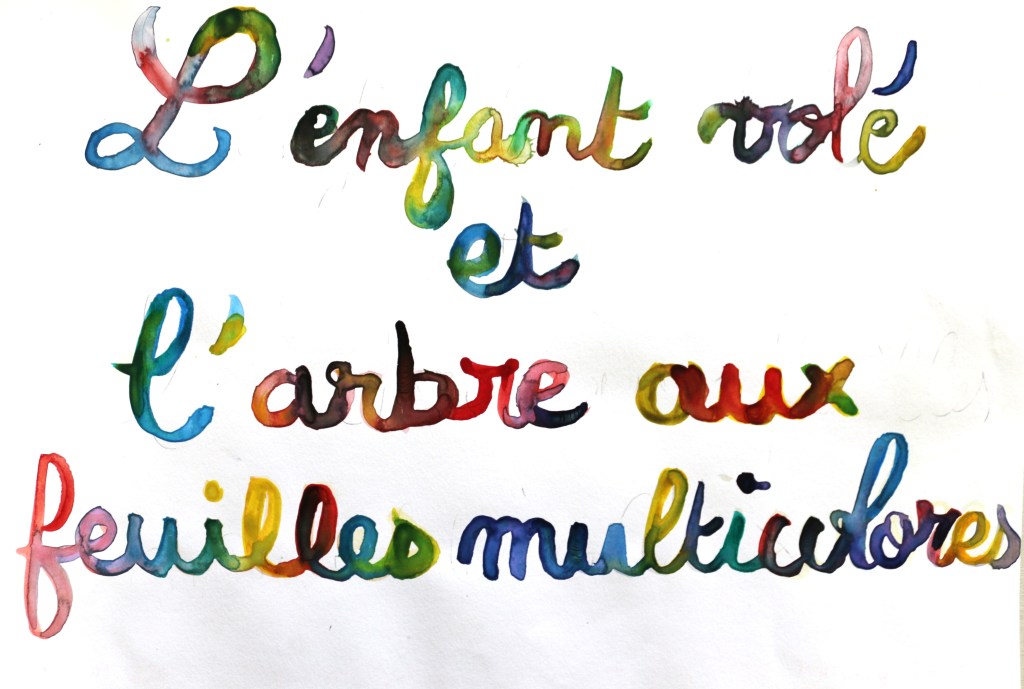 L'enfant volé
et
l'arbre aux
feuilles multicolores